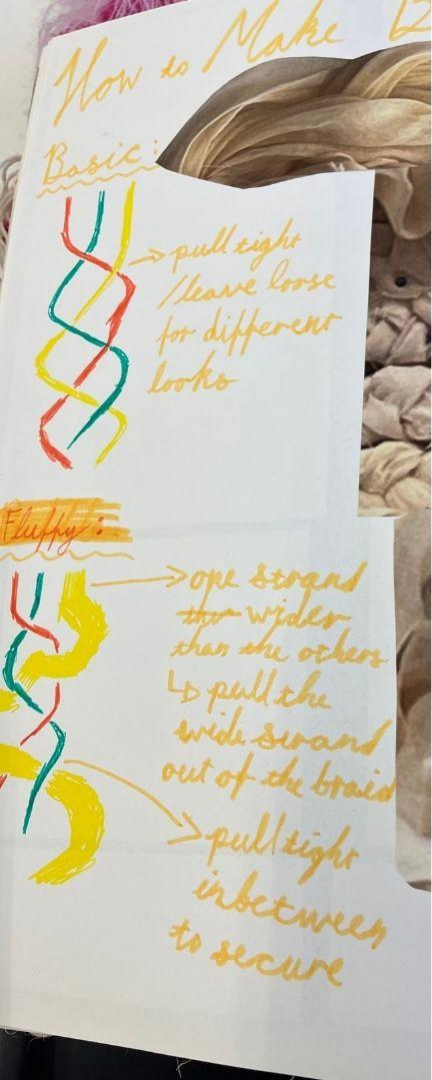 How to Make
Basic:
→ pull tight
/leave loose
for different
looks
Fluffy:
→ one strand
wider
than the others
↳ pull the
wide strand
out of the braid
→ pull tight
inbetween
to secure